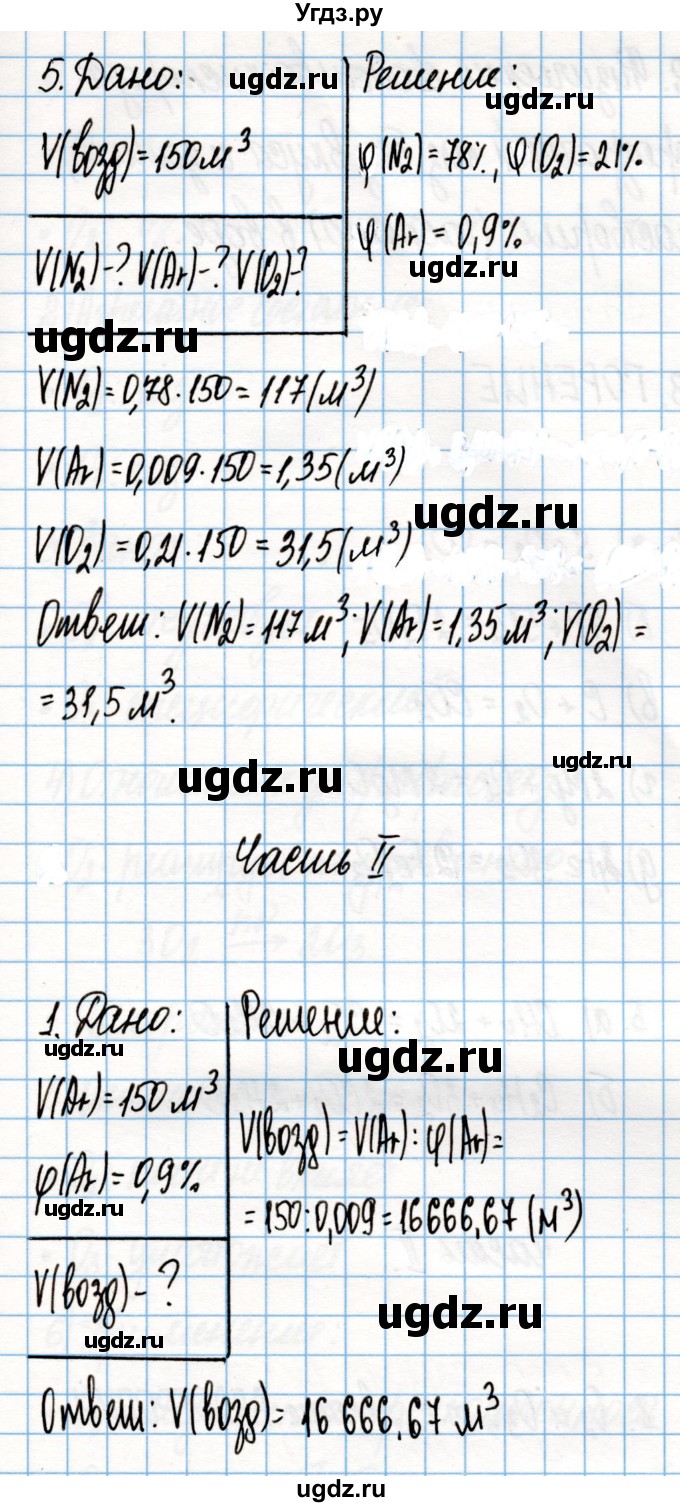 Угдз.ру
5. Дано:
ugdz.ru
V(возд)=150м³
V(N₂)-? V(Ar)-? V(O₂)-?
ugdz.ru
Решение:
ugdz.ru
φ(N₂)=78%, φ(O₂)=21%
φ(Ar)=0,9%
ugdz.ru
V(N₂)=0,78·150=117(м³)
V(Ar)=0,009·150=1,35(м³)
ugdz.ru
V(O₂)=0,21·150=31,5(м³)
Ответ: V(N₂)=117м³; V(Ar)=1,35м³; V(O₂)=
=31,5м³.
ugdz.ru
ugdz.ru
Часть II
1. Дано:
ugdz.ru
V(Ar)=150м³
φ(Ar)=0,9%
ugdz.ru
V(возд)-?
ugdz.ru
Решение:
ugdz.ru
V(возд)=V(Ar):φ(Ar)=
=150:0,009=16666,67(м³)
ugdz.ru
Ответ: V(возд)=16666,67м³
ugdz.ru